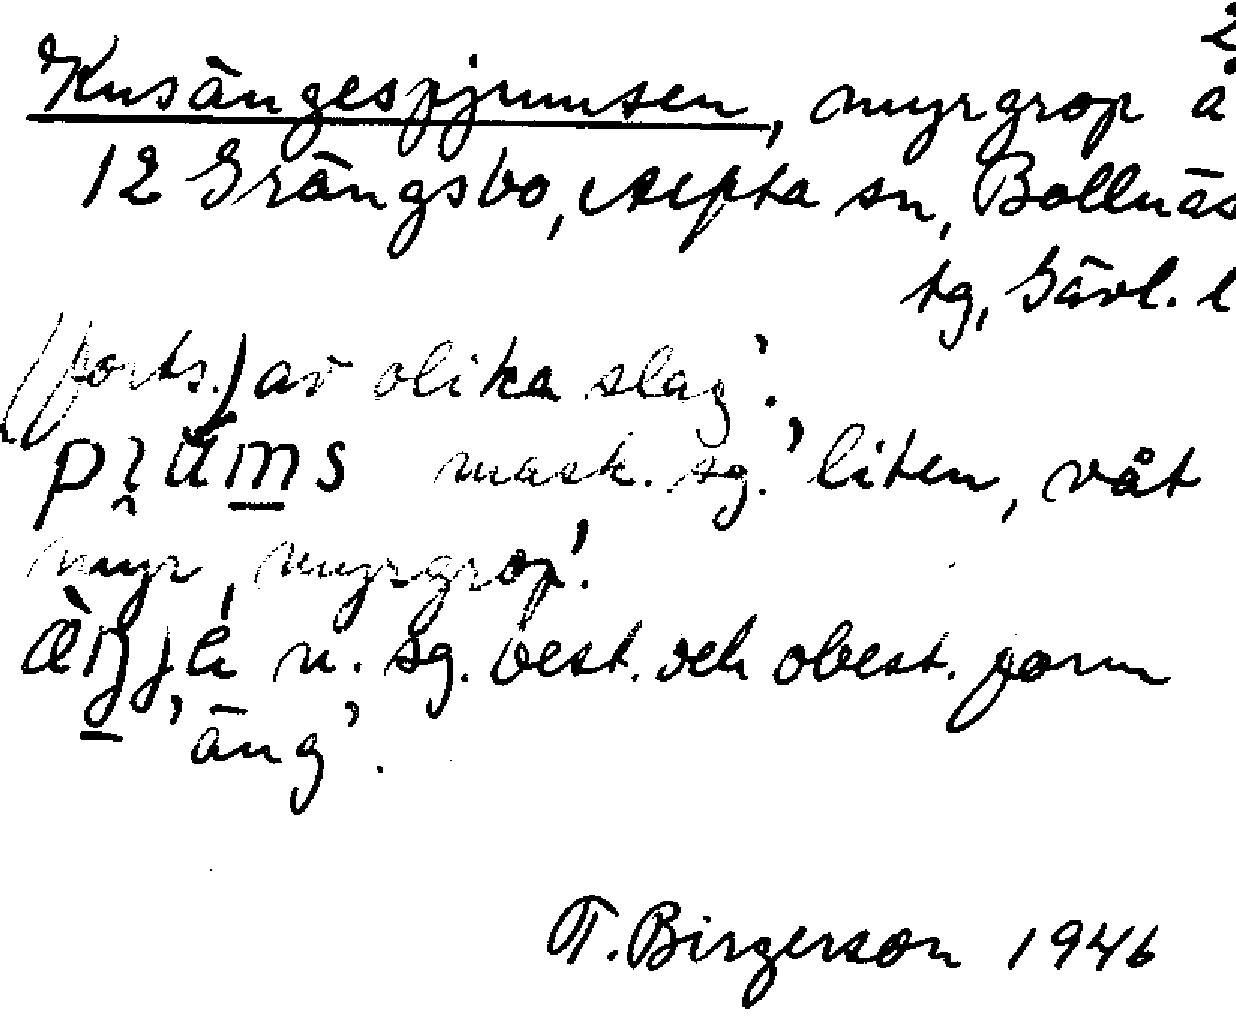 2
Knsängespjumsen, myrgrop å
12 Grängsbo, Alfta sn, Bollnäs
tg, Gävl. l
(forts.) av olika slag'.
mask. sg. 'liten, våt
myr, myrgrop'.
n. sg. best. och obest. form
'äng'.
T. Birgerson 1946